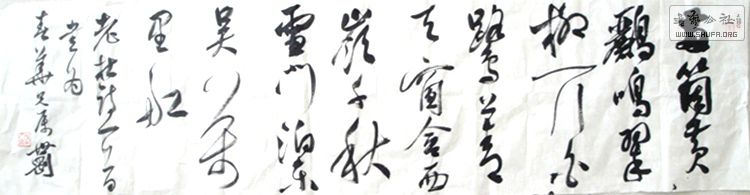 两箇黄
鸝鳴翠
柳一行白
鹭上青
天窗含西
嶺千秋
雪门泊东
吴万
里船
老杜诗一首
www.SHUFA.ORG